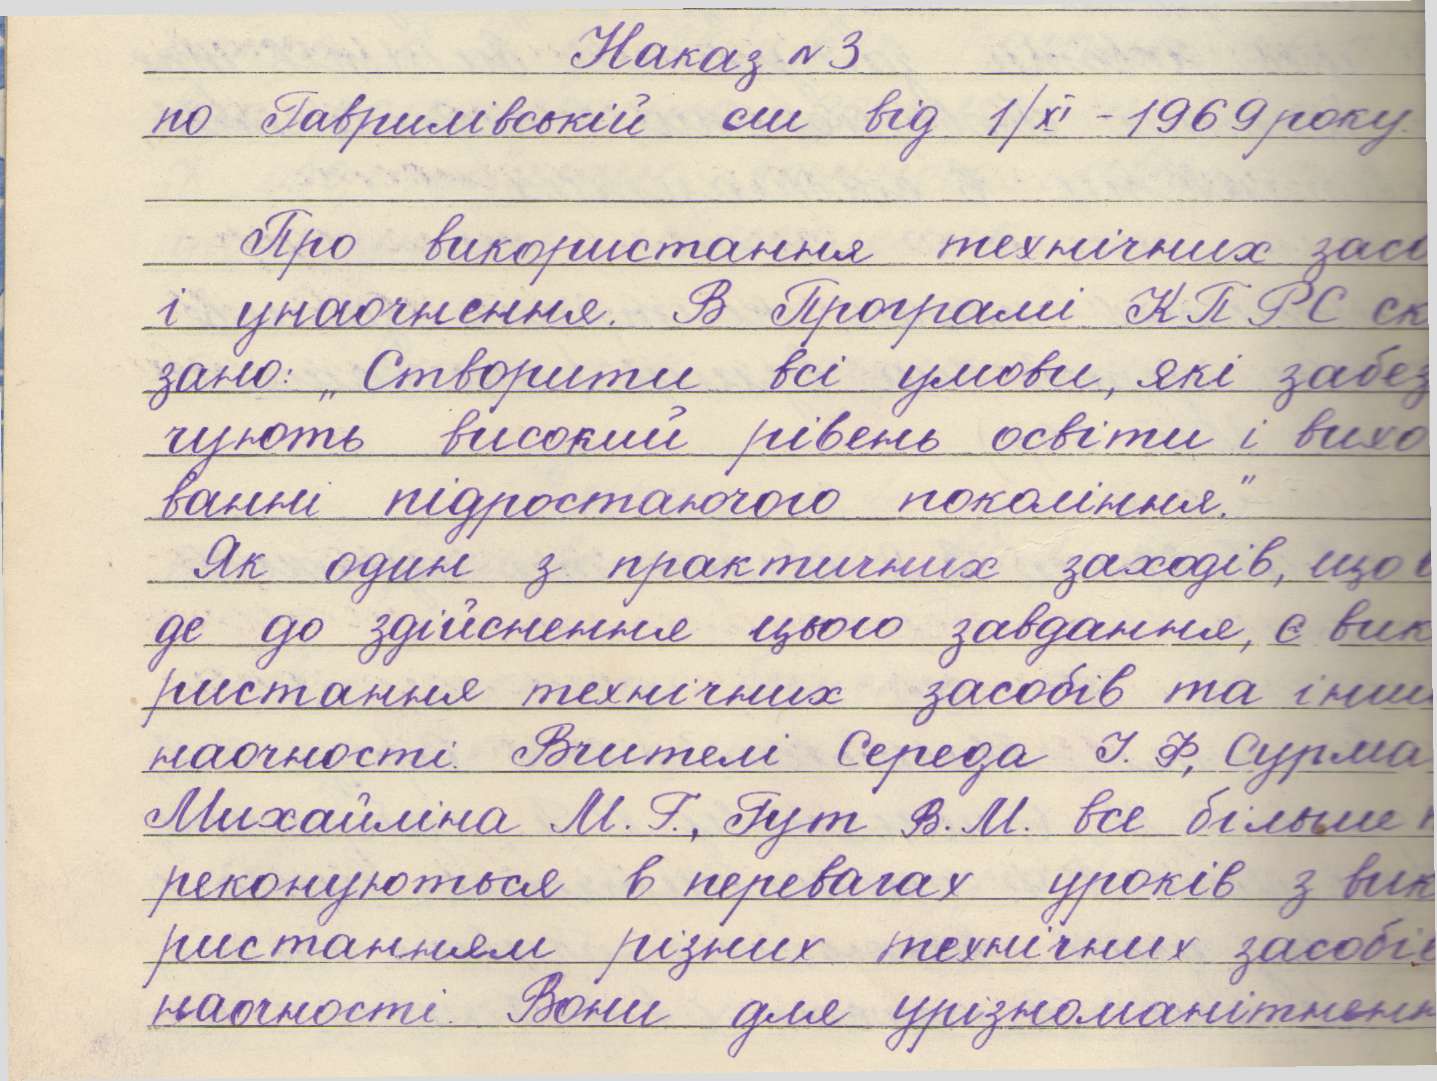 Наказ № 3
по Гаврилівській сш від 1/XI - 1969 року.
Про використання технічних засо
і унаочнення. В Програмі КПРС ск
зано: „Створити всі умови, які забез
чують високий рівень освіти і вихо
ванні підростаючого покоління."
Як один з практичних заходів, що в
де до здійснення цього завдання, є вик
ристання технічних засобів та інш
наочності. Вчителі Середа І. Ф, Сурма
Михайліна М. Г., Гут В. М. все більше п
реконуються в перевагах уроків з вик
ристанням різних технічних засобів
наочності. Вони для урізноманітненн